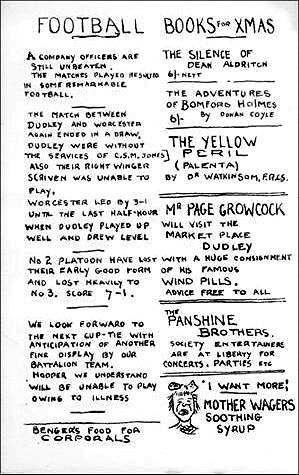 FOOTBALL
A COMPANY OFFICERS ARE
STILL UNBEATEN.
THE MATCHES PLAYED RESULTED
IN SOME REMARKABLE
FOOTBALL.
THE MATCH BETWEEN
DUDLEY AND WORCESTER
AGAIN ENDED IN A DRAW,
DUDLEY WERE WITHOUT
THE SERVICES OF C.S.M. JONES
ALSO THEIR RIGHT WINGER
SCRIVEN WAS UNABLE TO
PLAY.
WORCESTER LED BY 3-1
UNTIL THE LAST HALF-HOUR
WHEN DUDLEY PLAYED UP
WELL AND DREW LEVEL
No 2 PLATOON HAVE LOST
THEIR EARLY GOOD FORM
AND LOST HEAVILY TO
No 3. SCORE 7-1.
WE LOOK FORWARD TO
THE NEXT CUP-TIE WITH
ANTICIPATION OF ANOTHER
FINE DISPLAY BY OUR
BATTALION TEAM.
HOOPER WE UNDERSTAND
WILL BE UNABLE TO PLAY
OWING TO ILLNESS
BENGER'S FOOD FOR
CORPORALS
BOOKS FOR XMAS
THE SILENCE OF
DEAN ALDRITCH
6/- NETT
THE ADVENTURES
OF BOMFORD HOLMES
6/- BY DONAN COYLE
THE YELLOW
PERIL
(PALENTA)
BY DR WATKINSON, F.R.C.S.
MR PAGE GROWCOCK
WILL VISIT THE
MARKET PLACE
DUDLEY
WITH A HUGE CONSIGNMENT
OF HIS FAMOUS
WIND PILLS.
ADVICE FREE TO ALL
THE
PANSHINE
BROTHERS.
SOCIETY ENTERTAINERS
ARE AT LIBERTY FOR
CONCERTS, PARTIES ETC
"I WANT MORE!"
MOTHER WAGERS
SOOTHING
SYRUP